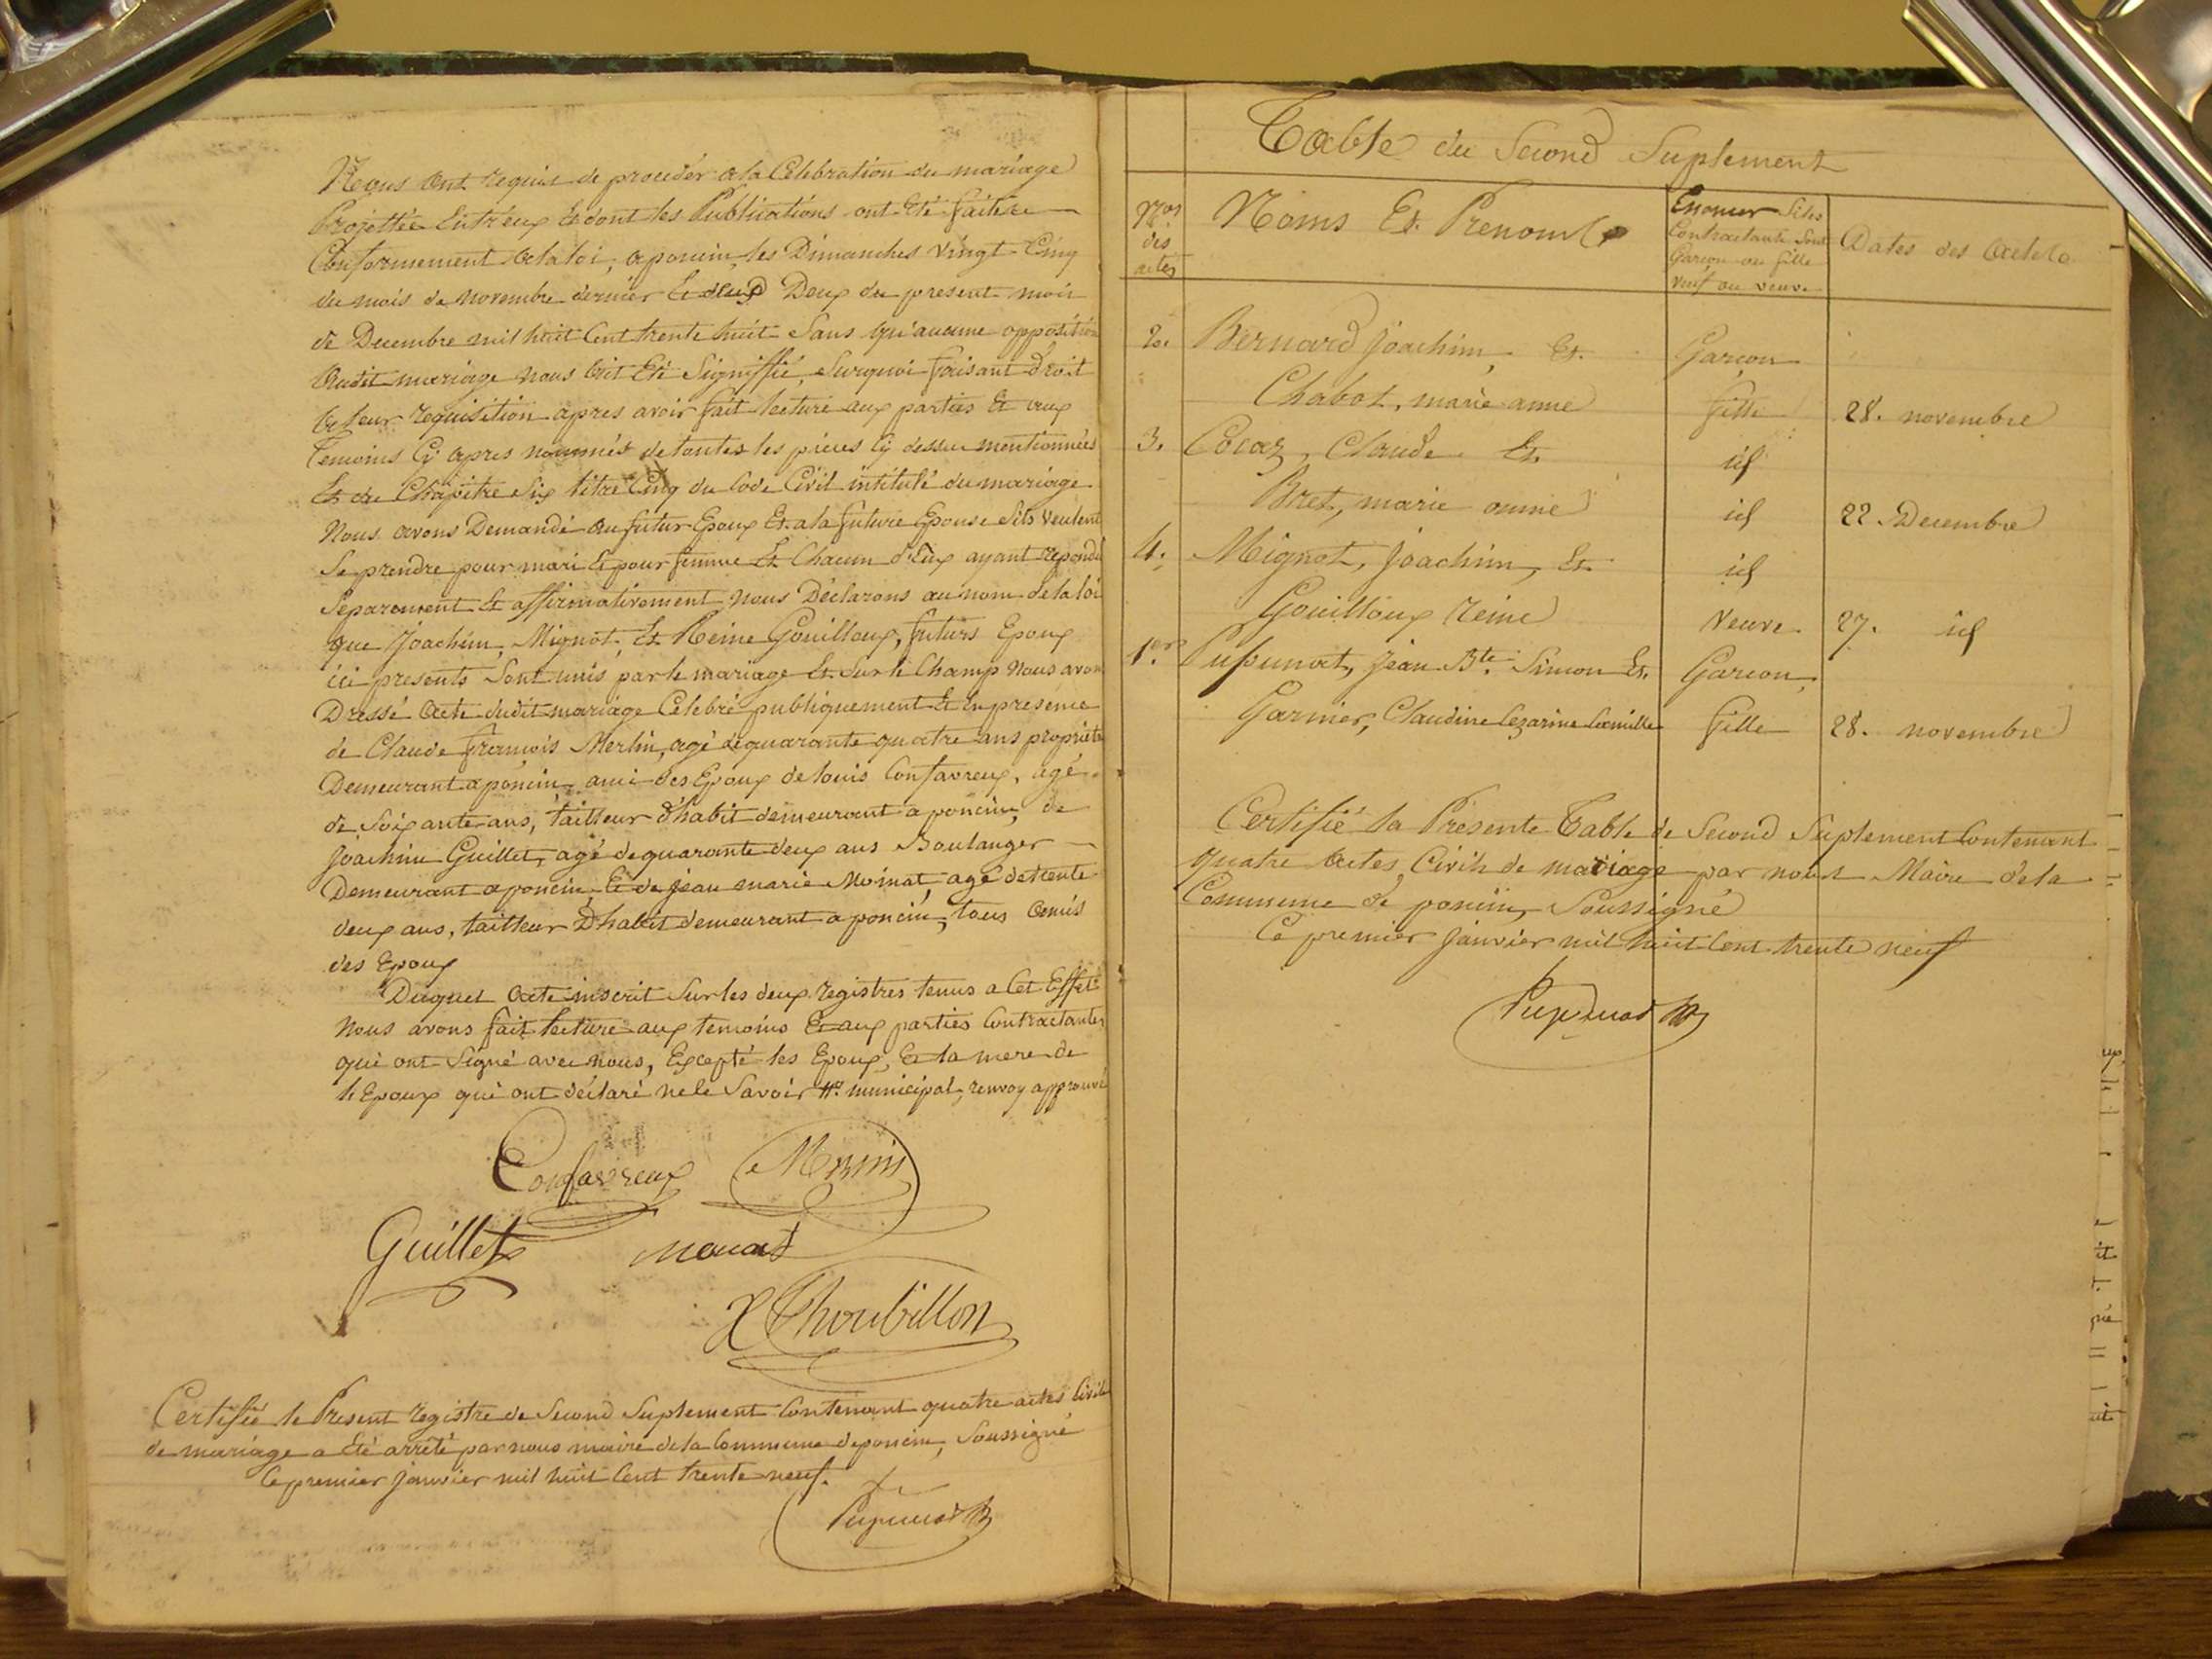 Nous ont requis de procéder a la Célébration du mariage
Projettée Entr'eux Et dont les Publications ont Eté faites
Conformement a la loi, a poncin, les Dimanches Vingt Cinq
du mois de novembre dernier Et deux Deux du present mois
de Decembre mil huit Cent trente huit Sans qu'aucune opposition
Audit mariage nous Ait Eté Signiffié, Surquoi faisant droit
A leur requisition apres avoir fait lecture aux parties Et aux
Temoins Cy apres nommés de toutes les pièces Cy dessus mentionnées
Et du Chapitre Six titre Cinq du Code Civil intitulé du mariage
Nous avons Demandé au futur Epoux Et a la future Epouse S'ils veulent
Se prendre pour mari Et pour femme Et Chacun d'Eux ayant repondu
Separement Et affirmativement nous Déclarons au nom de la loi
que Joachim, Mignot, Et Reine Gouilloux, futurs Epoux
ici presents Sont unis par le mariage Et Sur le Champ nous avons
Dressé Acte dudit mariage Célébré publiquement Et En presence
de Claude François Merlin, agé de quarante quatre ans propriét
Demeurant a poncin, ami des Epoux de louis Confavreux, agé
de Soixante ans, tailleur d'habit demeurant a poncin, de
Joachim Guillet, agé de quarante deux ans Boulanger
Demeurant a poncin, Et de Jean marie Moinat, agé de trente
deux ans, tailleur D'habit demeurant a poncin, tous Amis
des Epoux
Duquel Acte inscrit Sur les deux registres tenus a Cet Effet
Nous avons fait lecture aux temoins Et aux parties Contractantes
qui ont Signé avec nous, Excepté les Epoux, Et la mere de
l'Epoux qui ont déclaré ne le Savoir #. municipal, renvoy approuvé
Confavreux
Guillet
X Thoubillon
Certifié le Présent registre de Second Suplement Contenant quatre actes Civils
de mariage a été arrêté par nous maire de la Commune de poncin, Soussigné
Ce premier Janvier mil huit Cent trente neuf.
Table du Second Suplement
Nos des actes
Noms Et Prenoms
Enoncer Si les Contractants Sont Garcon ou fille veuf ou veuve
Dates des Actes
2. Bernard Joachim, Et Garcon
Chabot, marie anne fille 28. novembre
3. Cocaz, Claude Et id
Bret, marie anne id 22. Decembre
4. Mignot, Joachim, Et id
Gouilloux reine Veuve 27. id
1er Pupunat, Jean Bte Simon Et Garcon
Garnier, Claudine Cezarine Camille fille 28. novembre
Certifié la Présente Table de Second Suplement Contenant
quatre Actes Civils de mariage par nous Maire de la
Commune de poncin, Soussigné
Ce premier Janvier mil huit Cent trente neuf